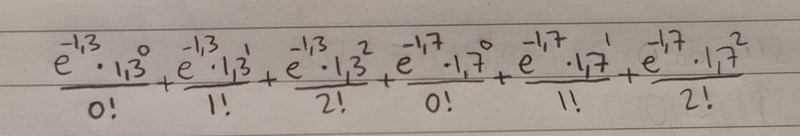 e^-1,3 · 1,3^0 / 0! + e^-1,3 · 1,3^1 / 1! + e^-1,3 · 1,3^2 / 2! + e^-1,7 · 1,7^0 / 0! + e^-1,7 · 1,7^1 / 1! + e^-1,7 · 1,7^2 / 2!